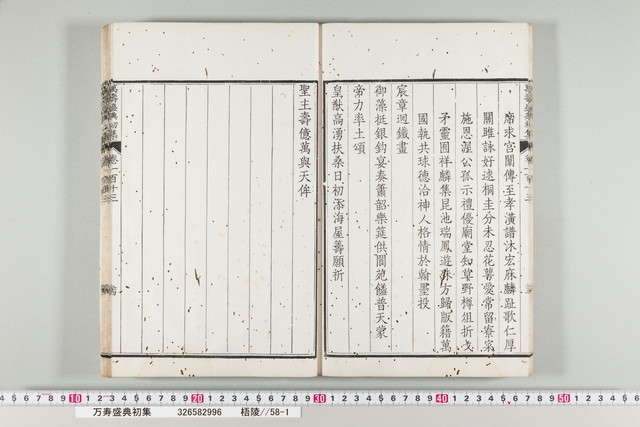 席求宫闈傳至孝潢譜沐宏庥麟趾歌仁厚
關雎詠好逑桐圭分未忍花萼愛常留寮寀
施恩渥公孤示禮優廟堂知草野樽俎折戈
矛靈囿祥麟集昆池瑞鳳遊殊方歸版籍萬
國執共球德洽神人格情於翰墨投
宸章迥鐵畫
御藻挺銀鈎宴奏簫韶樂筵供閬苑饈普天蒙
帝力率土頌
皇猷高湧扶桑日初添海屋籌願祈
聖主壽億萬與天侔
卷一百十三
万寿盛典初集 326582996 梧陵//58-1